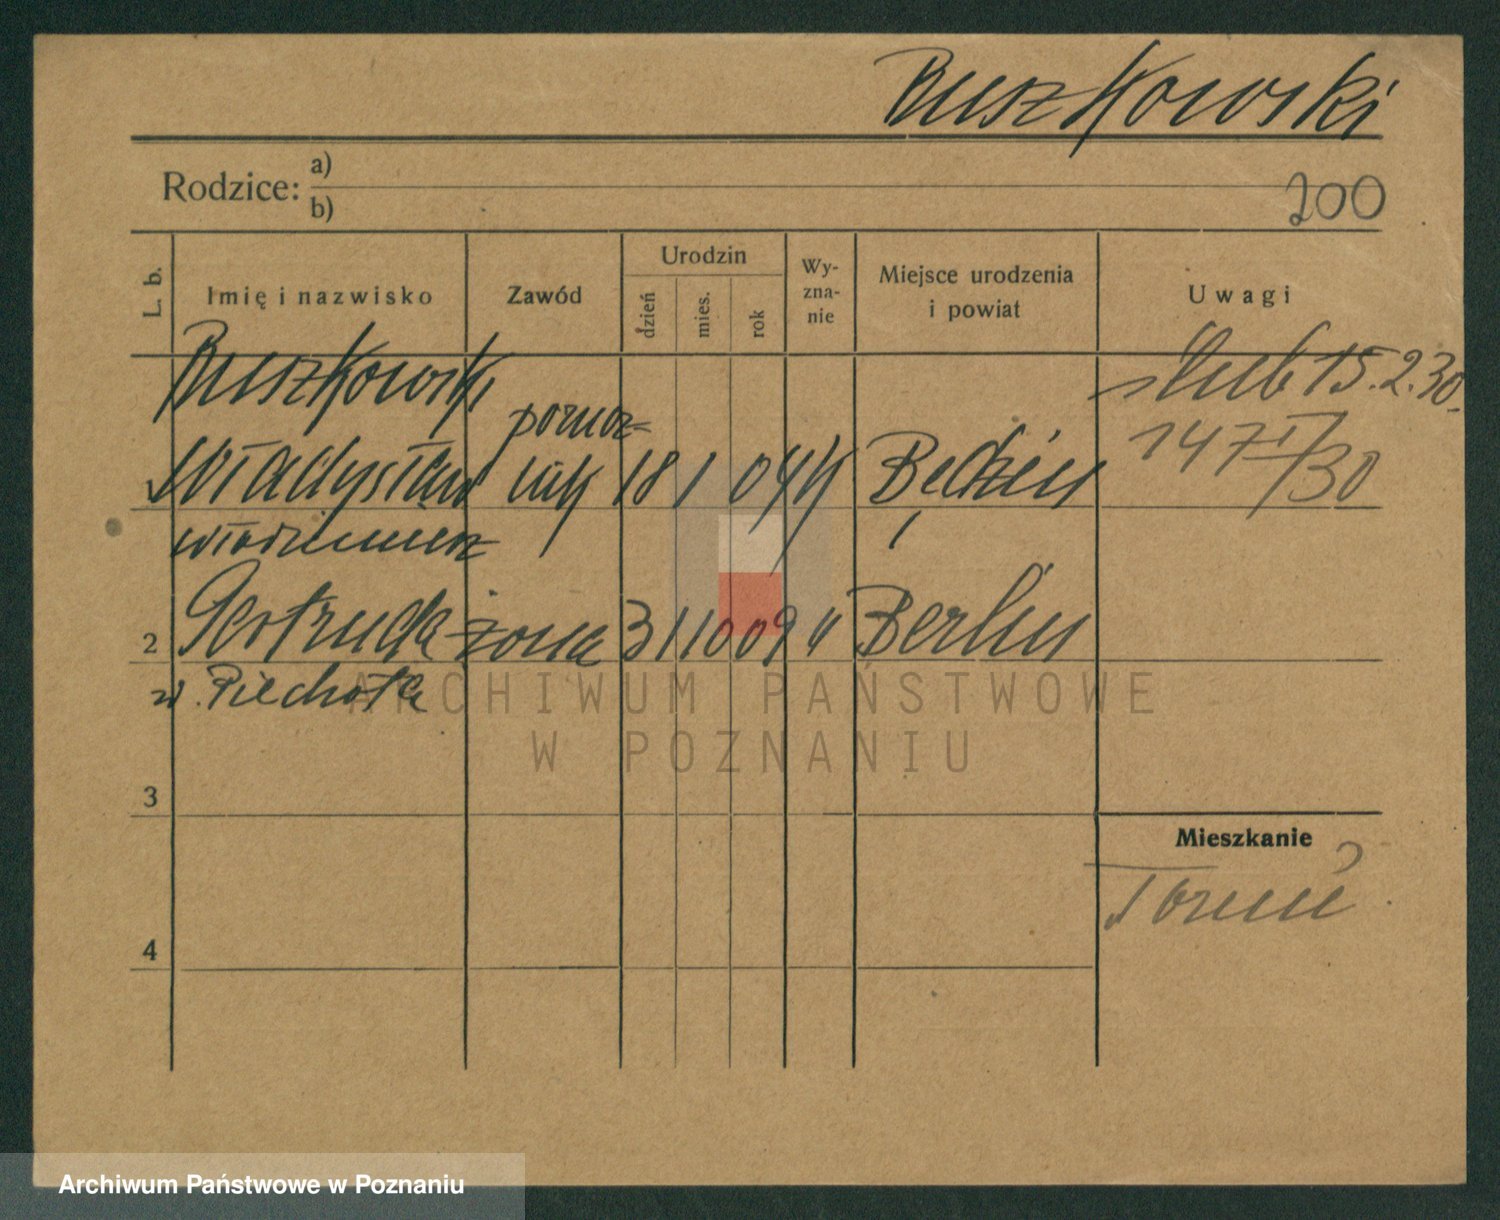 Buszkowski
Rodzice: a)
b)
200
L. b. Imię i nazwisko Zawód Urodzin dzień mies. rok Wy-zna-nie Miejsce urodzenia i powiat Uwagi
Buszkowski ślub 15.2.30.
porucz-
1 Władysław nik 18 1 04 k Będzin 147 I/30
Włodzimierz
2 Gertruda żona 31 10 09 k Berlin
z d. Piechotka
3
Mieszkanie
Toruń
4
ARCHIWUM PAŃSTWOWE
W POZNANIU
Archiwum Państwowe w Poznaniu